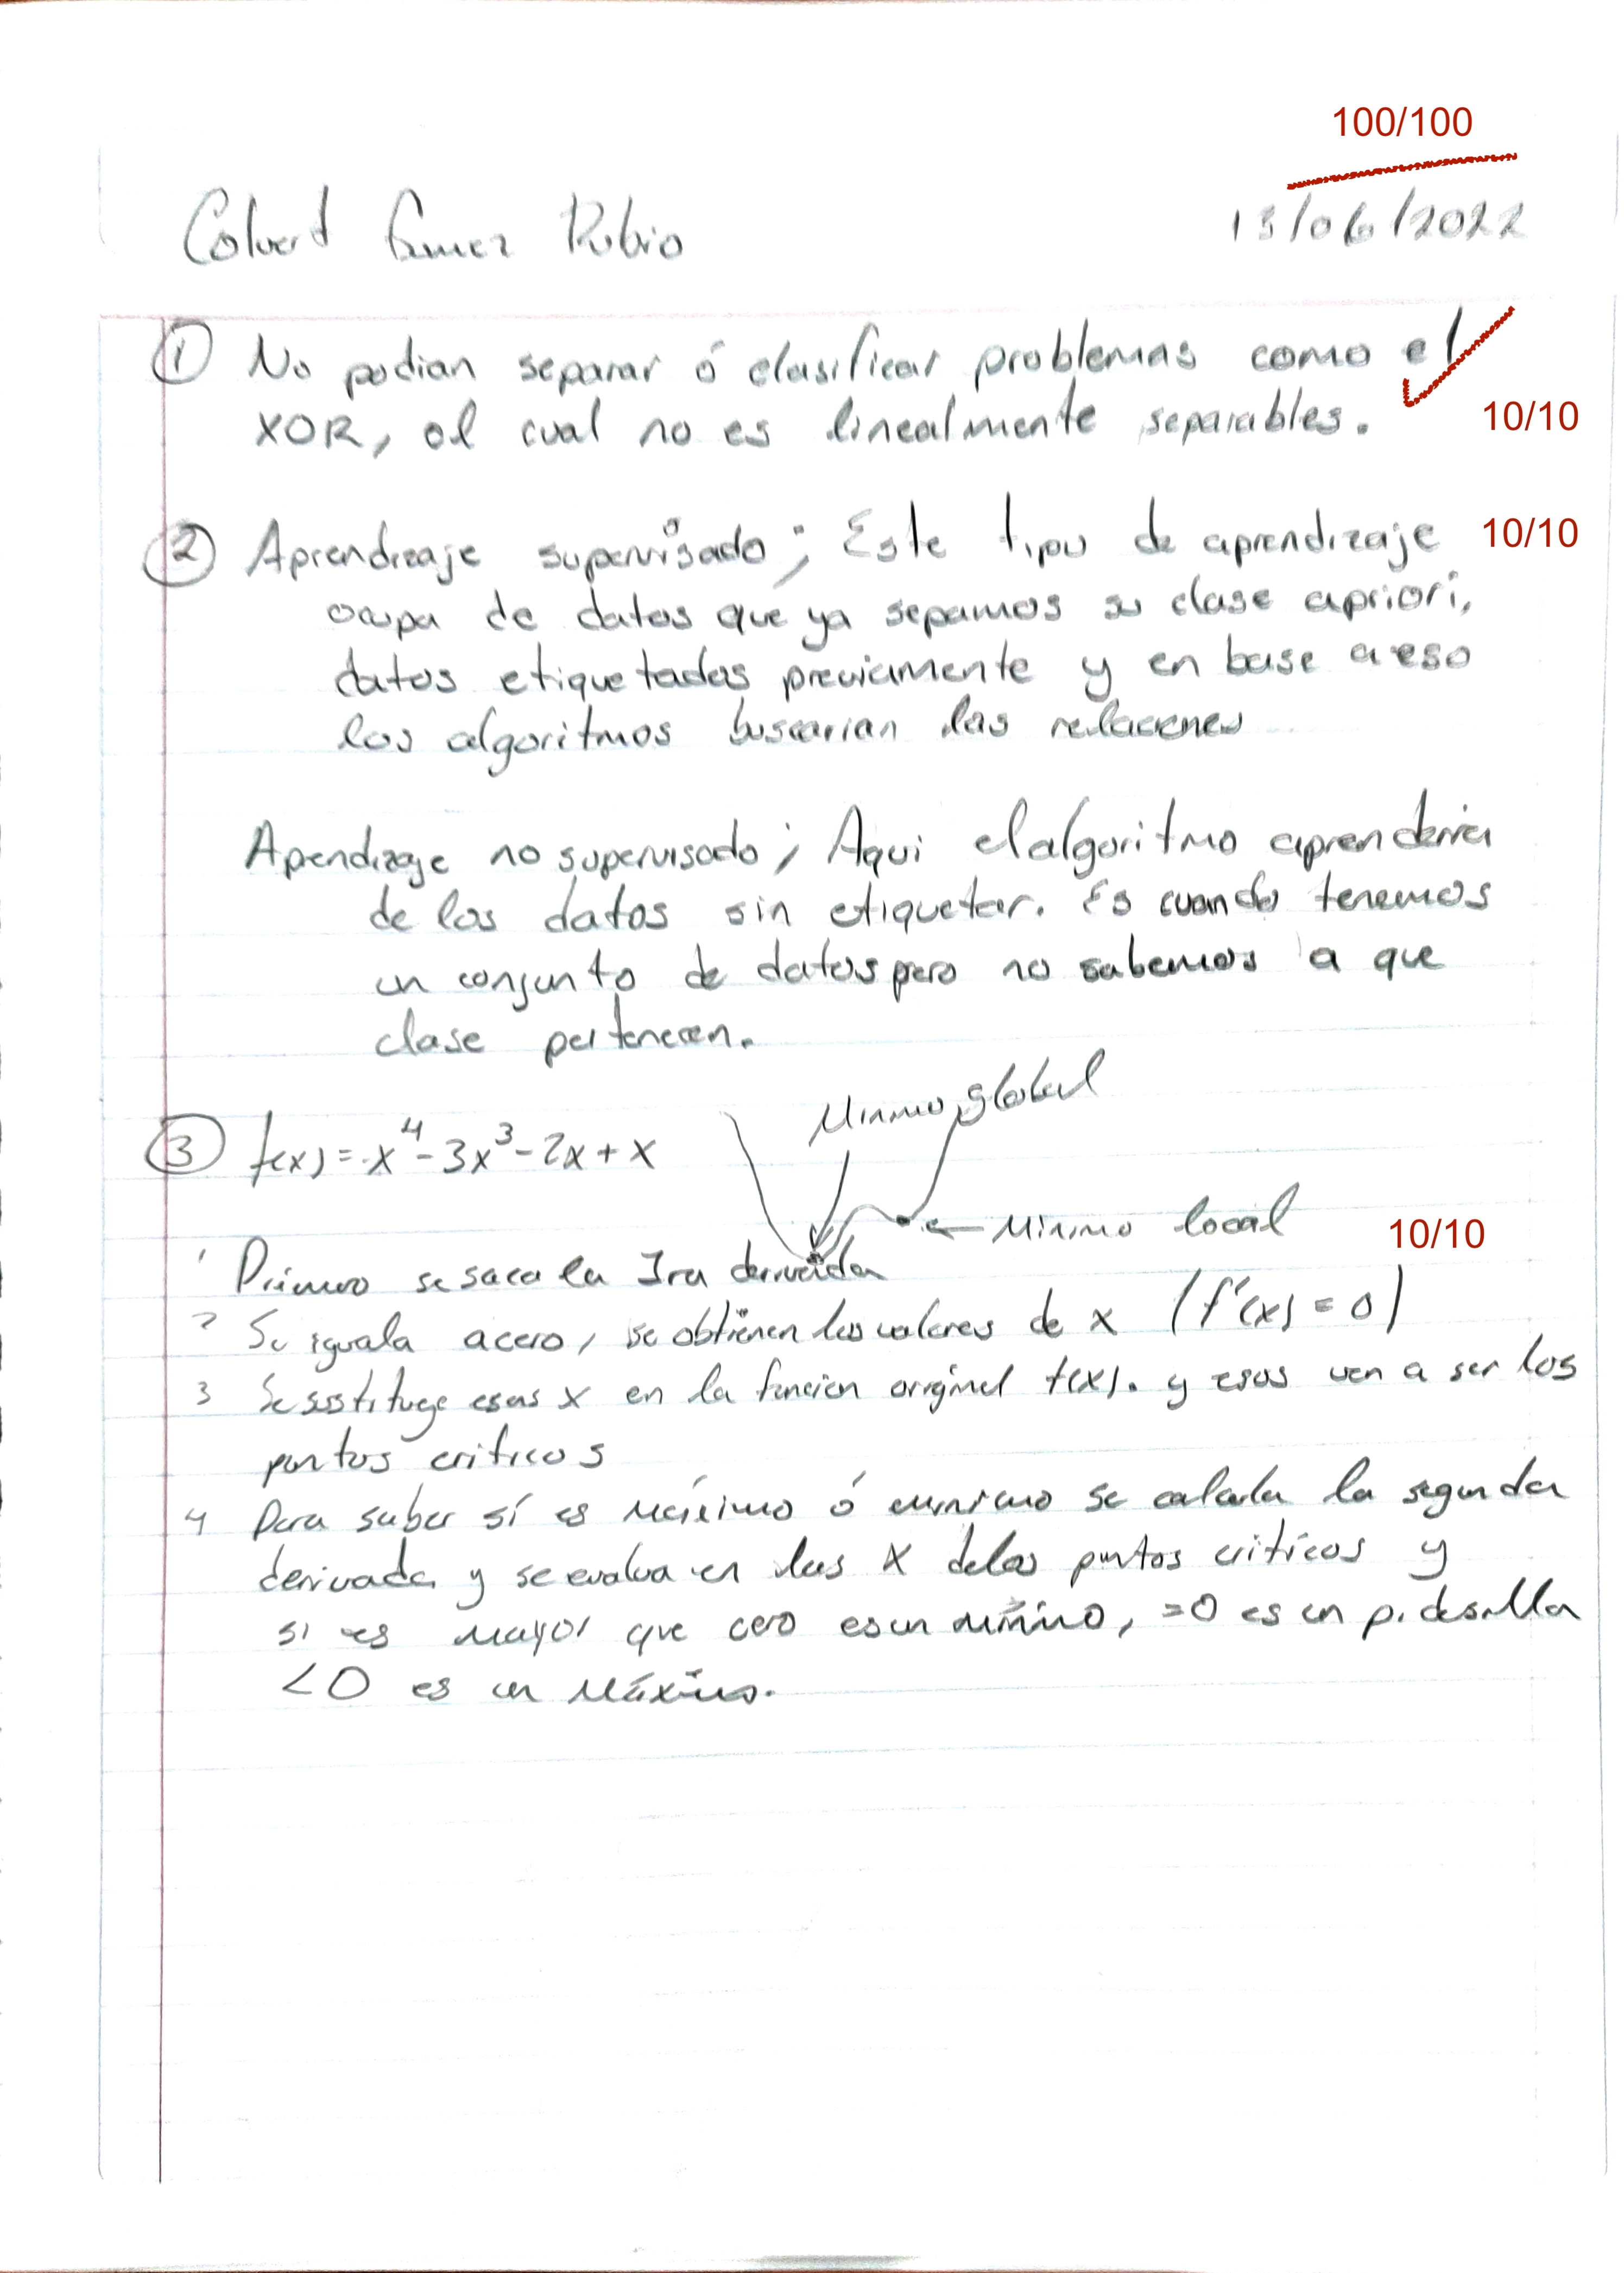 100/100
13/06/2022
① No podian separar ó clasificar problemas como el
XOR, el cual no es linealmente separables.
10/10
② Aprendizaje supervisado; Este tipo de aprendizaje
10/10
ocupa de datos que ya sepamos su clase apriori,
datos etiquetados previamente y en base a eso
los algoritmos buscarian las relaciones
Aprendizaje no supervisado; Aqui el algoritmo aprenderia
de los datos sin etiquetar. Es cuando tenemos
un conjunto de datos pero no sabemos a que
clase pertenecen.
Minimo global
③ f(x) = x⁴ - 3x³ - 2x + x
← Minimo local
10/10
1 Primero se saca la 1ra derivada
2 Se iguala a cero, se obtienen los valores de x (f'(x) = 0)
3 Se sustituye esas x en la funcion original f(x). y esos ven a ser los
puntos criticos
4 Para saber sí es máximo ó minimo se calcula la segunda
derivada y se evalua en las x de los puntos criticos y
si es mayor que cero es un mínimo, =0 es un p. de silla
<0 es un Máximo.